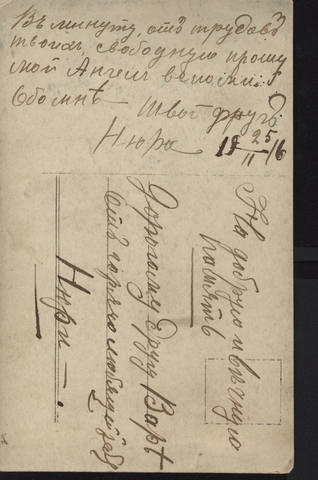 Въ минуту, отъ трудовъ
твоихъ, свободную прошу
мой Ангел вспомни
Обо мнѣ — Твой другъ
Нюра 19 25/II 16
На добрую и вѣчную
память
Дорогому другу Варѣ
Отъ горячо любящ
Нюры —.